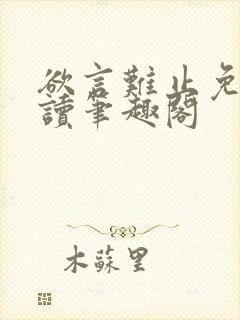 欲言難止免
讀筆趣閣
木蘇里